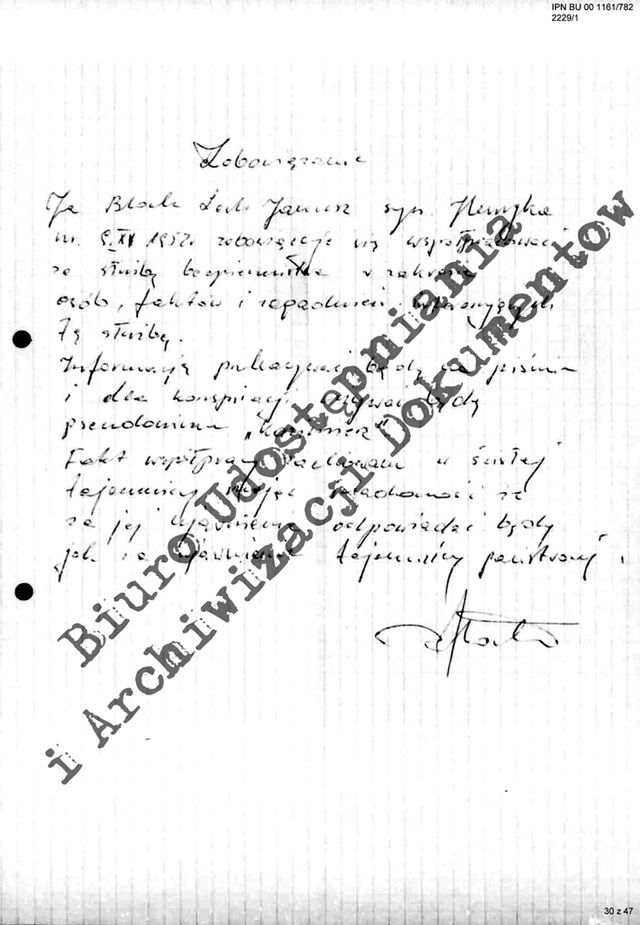 IPN BU 00 1161/782
2229/1
Zobowiązanie
Ja Janusz syn Henryka
ur. XII 1952r. zobowiązuje się współpracować
ze służbą bezpieczeństwa w zakresie
osób, faktów i zagadnień interesujących
Tę służbę.
Informację przekazywać będę na piśmie
i dla konspiracji używać będę
pseudonimu „Kazimierz”
Fakt współpracy zachowam w ścisłej
tajemnicy mając świadomość że
za jej ujawnienie odpowiadać będę
jak za ujawnienie tajemnicy państwowej.
Biuro Udostępniania
i Archiwizacji Dokumentów
30 z 47